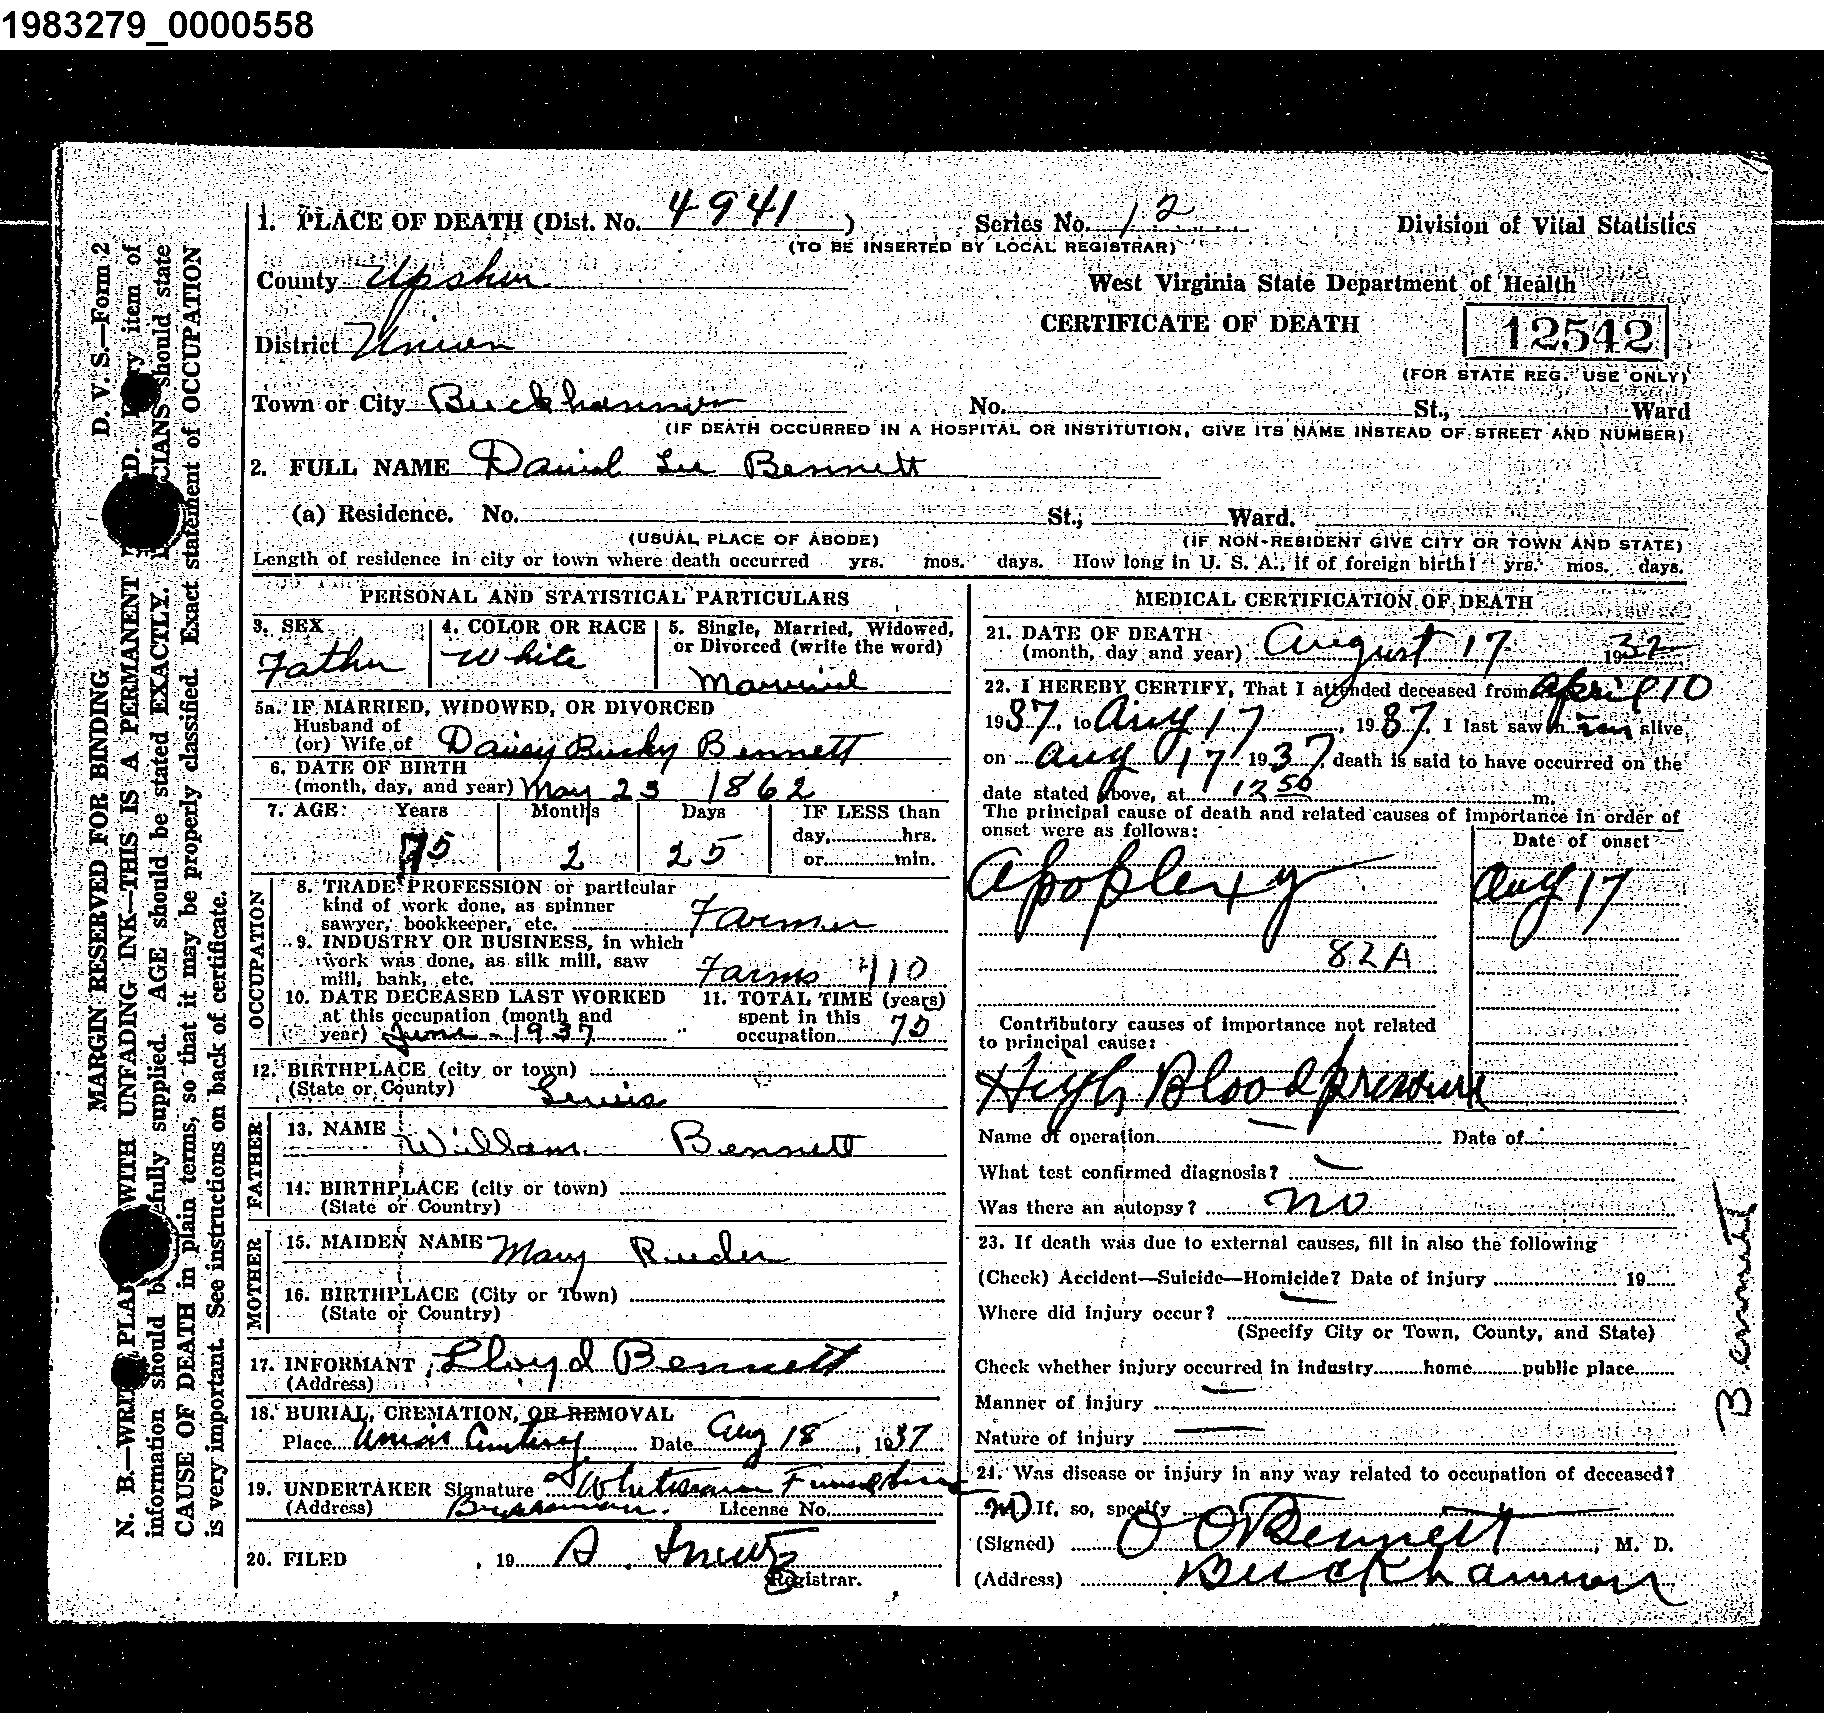 1983279_0000558
1. PLACE OF DEATH (Dist. No. 4941 ) Series No. 12 Division of Vital Statistics
(TO BE INSERTED BY LOCAL REGISTRAR)
County Upshur West Virginia State Department of Health
CERTIFICATE OF DEATH 12542
District Union
(FOR STATE REG. USE ONLY)
Town or City Buckhannon No. St., Ward
(IF DEATH OCCURRED IN A HOSPITAL OR INSTITUTION, GIVE ITS NAME INSTEAD OF STREET AND NUMBER)
2. FULL NAME Daniel Lee Bennett
(a) Residence. No. St., Ward.
(USUAL PLACE OF ABODE) (IF NON-RESIDENT GIVE CITY OR TOWN AND STATE)
Length of residence in city or town where death occurred yrs. mos. days. How long in U. S. A., if of foreign birth? yrs. mos. days.
PERSONAL AND STATISTICAL PARTICULARS
3. SEX 4. COLOR OR RACE 5. Single, Married, Widowed,
or Divorced (write the word)
Father White Married
5a. IF MARRIED, WIDOWED, OR DIVORCED
Husband of
(or) Wife of Daisy Bennett
6. DATE OF BIRTH
(month, day, and year) May 23 1862
7. AGE Years Months Days IF LESS than
day, hrs.
75 2 25 or min.
OCCUPATION
8. TRADE PROFESSION or particular
kind of work done, as spinner
sawyer, bookkeeper, etc. Farmer
9. INDUSTRY OR BUSINESS, in which
work was done, as silk mill, saw
mill, bank, etc. Farms 410
10. DATE DECEASED LAST WORKED 11. TOTAL TIME (years)
at this occupation (month and spent in this
year) June - 1937 occupation 75
12. BIRTHPLACE (city or town)
(State or County) Lewis
FATHER
13. NAME William Bennett
14. BIRTHPLACE (city or town)
(State or Country)
MOTHER
15. MAIDEN NAME Mary Reeder
16. BIRTHPLACE (City or Town)
(State or Country)
17. INFORMANT Lloyd Bennett
(Address)
18. BURIAL, CREMATION, OR REMOVAL
Place Union Cemetery Date Aug 18, 1937
19. UNDERTAKER Signature Whitescarver Funeral
(Address) License No.
20. FILED , 19 A.
Registrar.
MEDICAL CERTIFICATION OF DEATH
21. DATE OF DEATH
(month, day and year) August 17 1932
22. I HEREBY CERTIFY, That I attended deceased from April 10
1937, to Aug 17, 1937, I last saw him alive
on Aug 17 1937 death is said to have occurred on the
date stated above, at 12 50 m.
The principal cause of death and related causes of importance in order of
onset were as follows: Date of onset
Apoplexy Aug 17
82A
Contributory causes of importance not related
to principal cause:
High Blood pressure
Name of operation — Date of
What test confirmed diagnosis? —
Was there an autopsy? no
23. If death was due to external causes, fill in also the following
(Check) Accident—Suicide—Homicide? Date of injury 19
Where did injury occur? —
(Specify City or Town, County, and State)
Check whether injury occurred in industry home public place
Manner of injury —
Nature of injury —
24. Was disease or injury in any way related to occupation of deceased?
no If, so, specify
(Signed) O O Bennett, M. D.
(Address) Buckhannon
MARGIN RESERVED FOR BINDING D. V. S.—Form 2
N. B.—WRITE PLAI WITH UNFADING INK—THIS IS A PERMANENT D. ry item of
information should b efully supplied. AGE should be stated EXACTLY. ICIANS should state
CAUSE OF DEATH in plain terms, so that it may be properly classified. Exact statement of OCCUPATION
is very important. See instructions on back of certificate.
Bennett